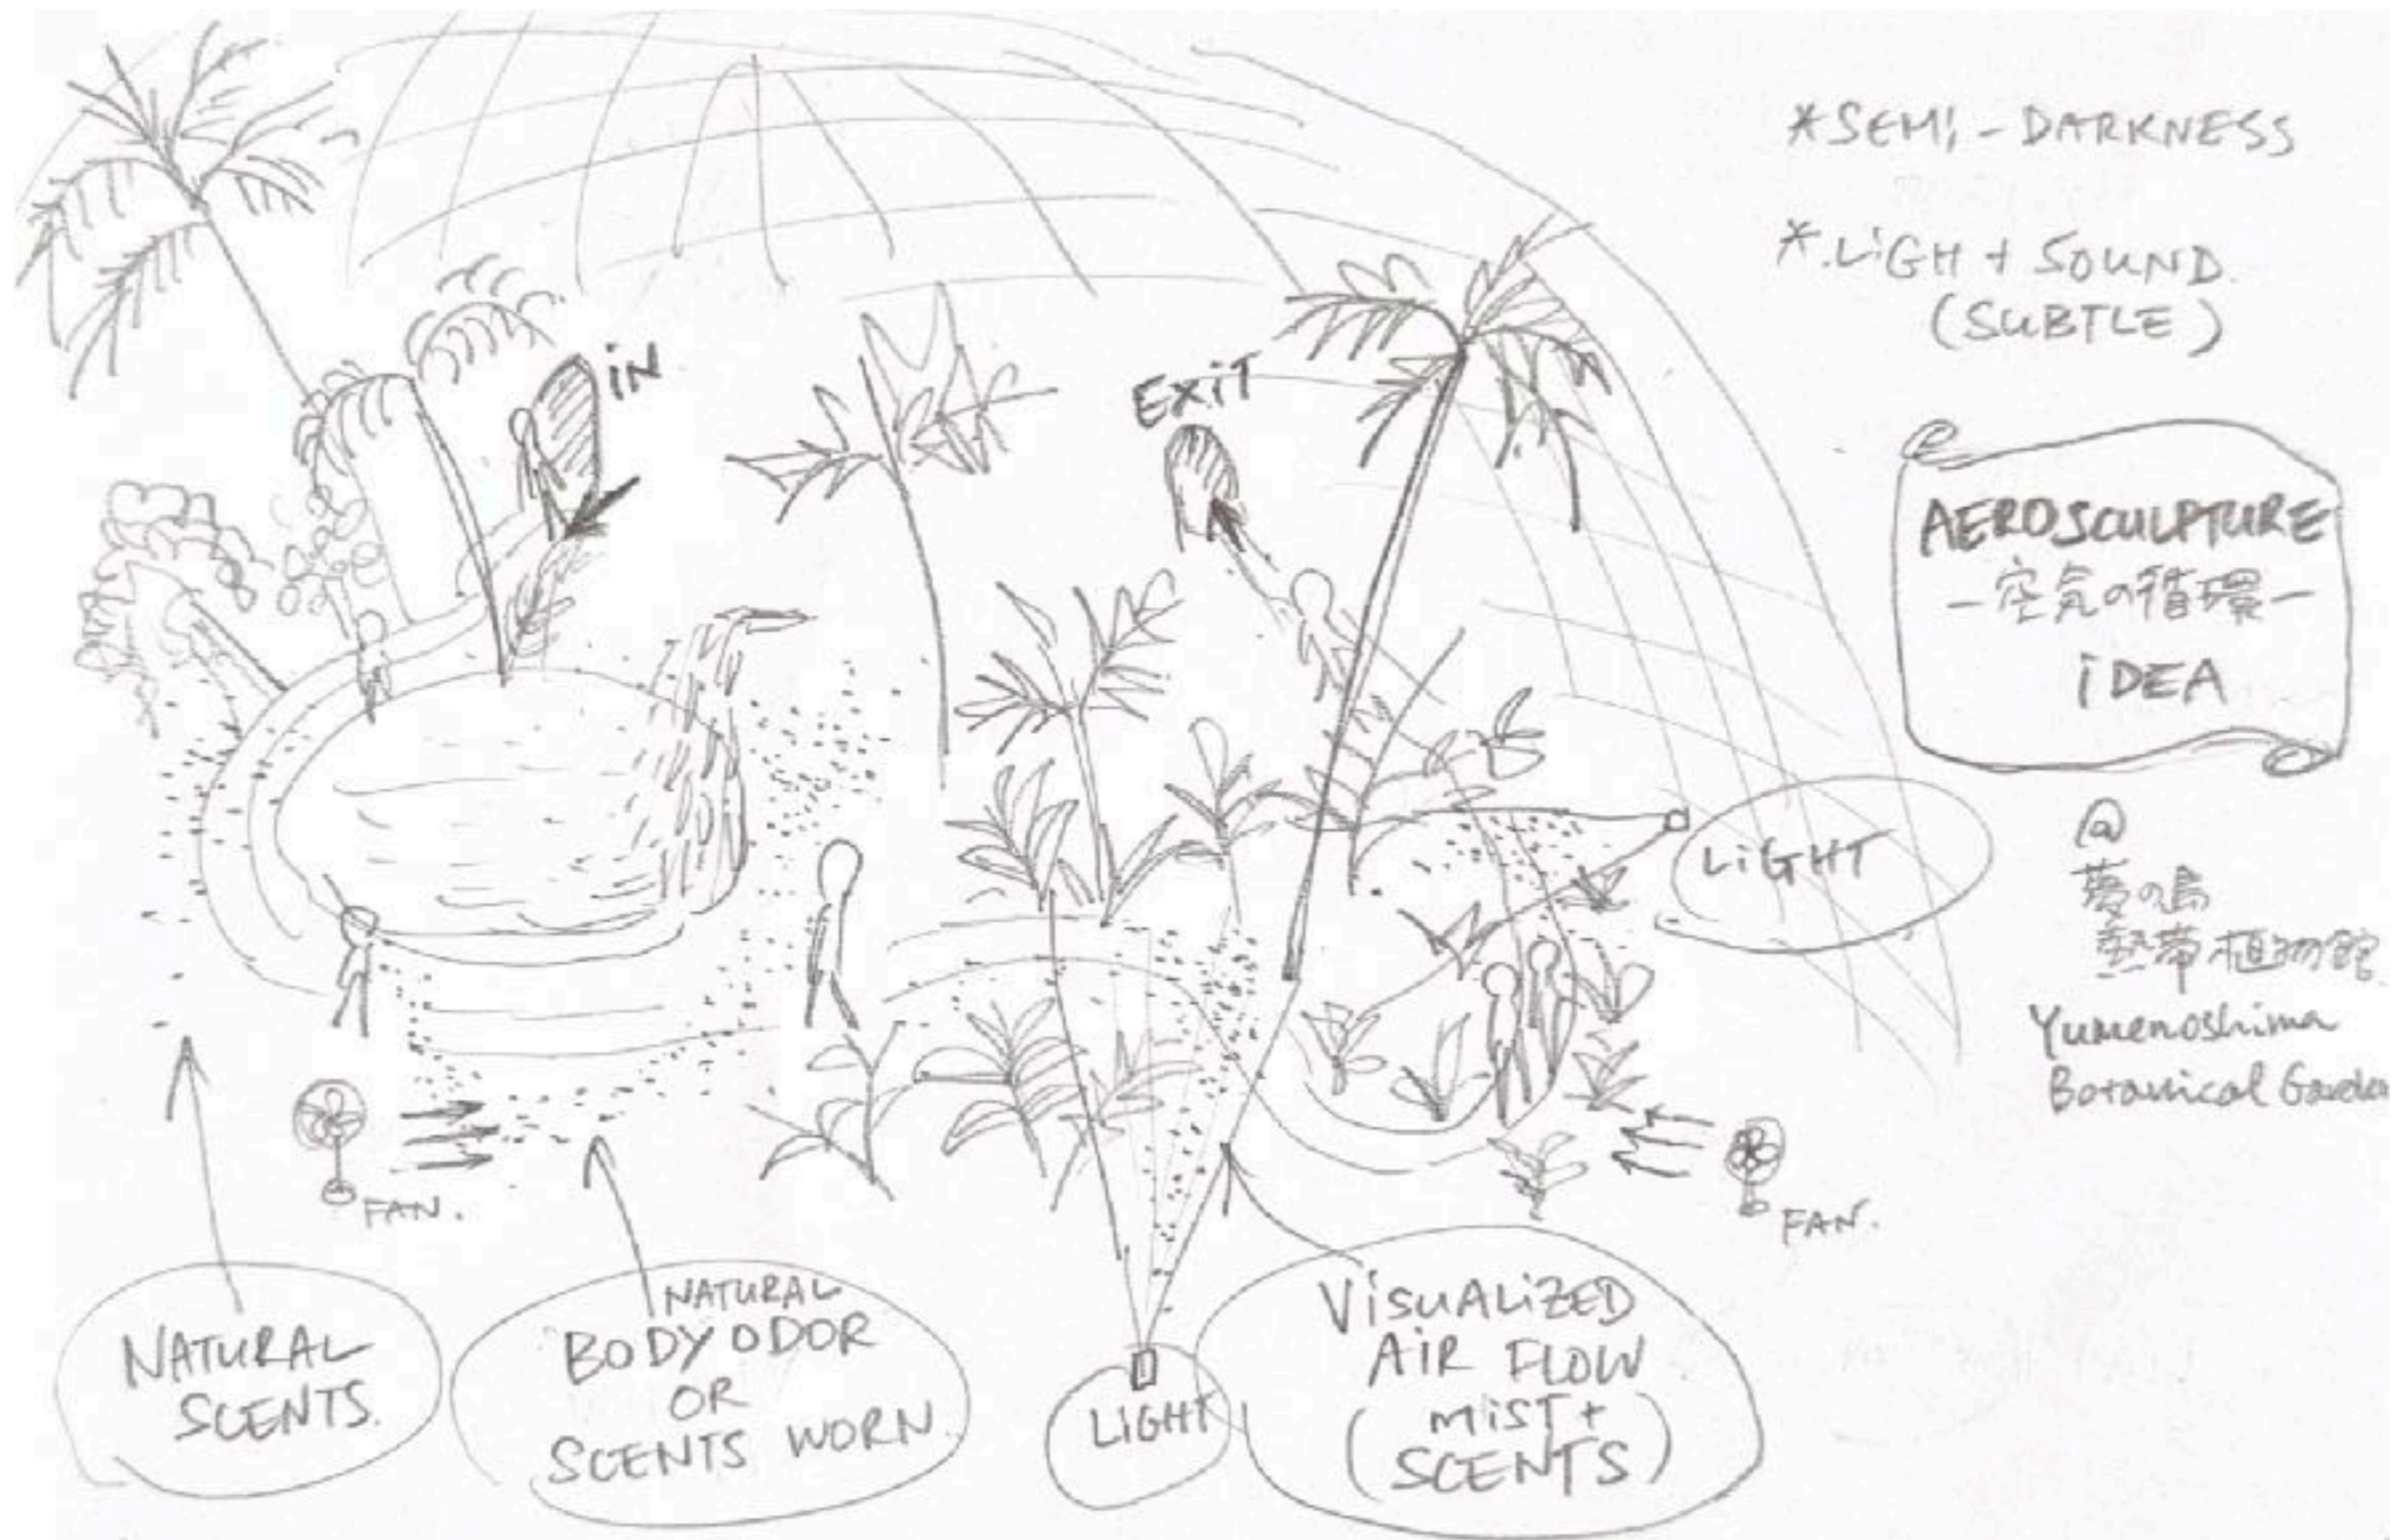 *SEMI - DARKNESS
*.LIGH + SOUND.
(SUBTLE)
IN
EXIT
AEROSCULPTURE
－空気の循環－
IDEA
@
夢の島
熱帯植物館
Yumenoshima
Botanical Garden
LIGHT
FAN.
FAN.
NATURAL
SCENTS.
NATURAL
BODY ODOR
OR
SCENTS WORN
LIGHT
VISUALIZED
AIR FLOW
(MIST +
SCENTS)